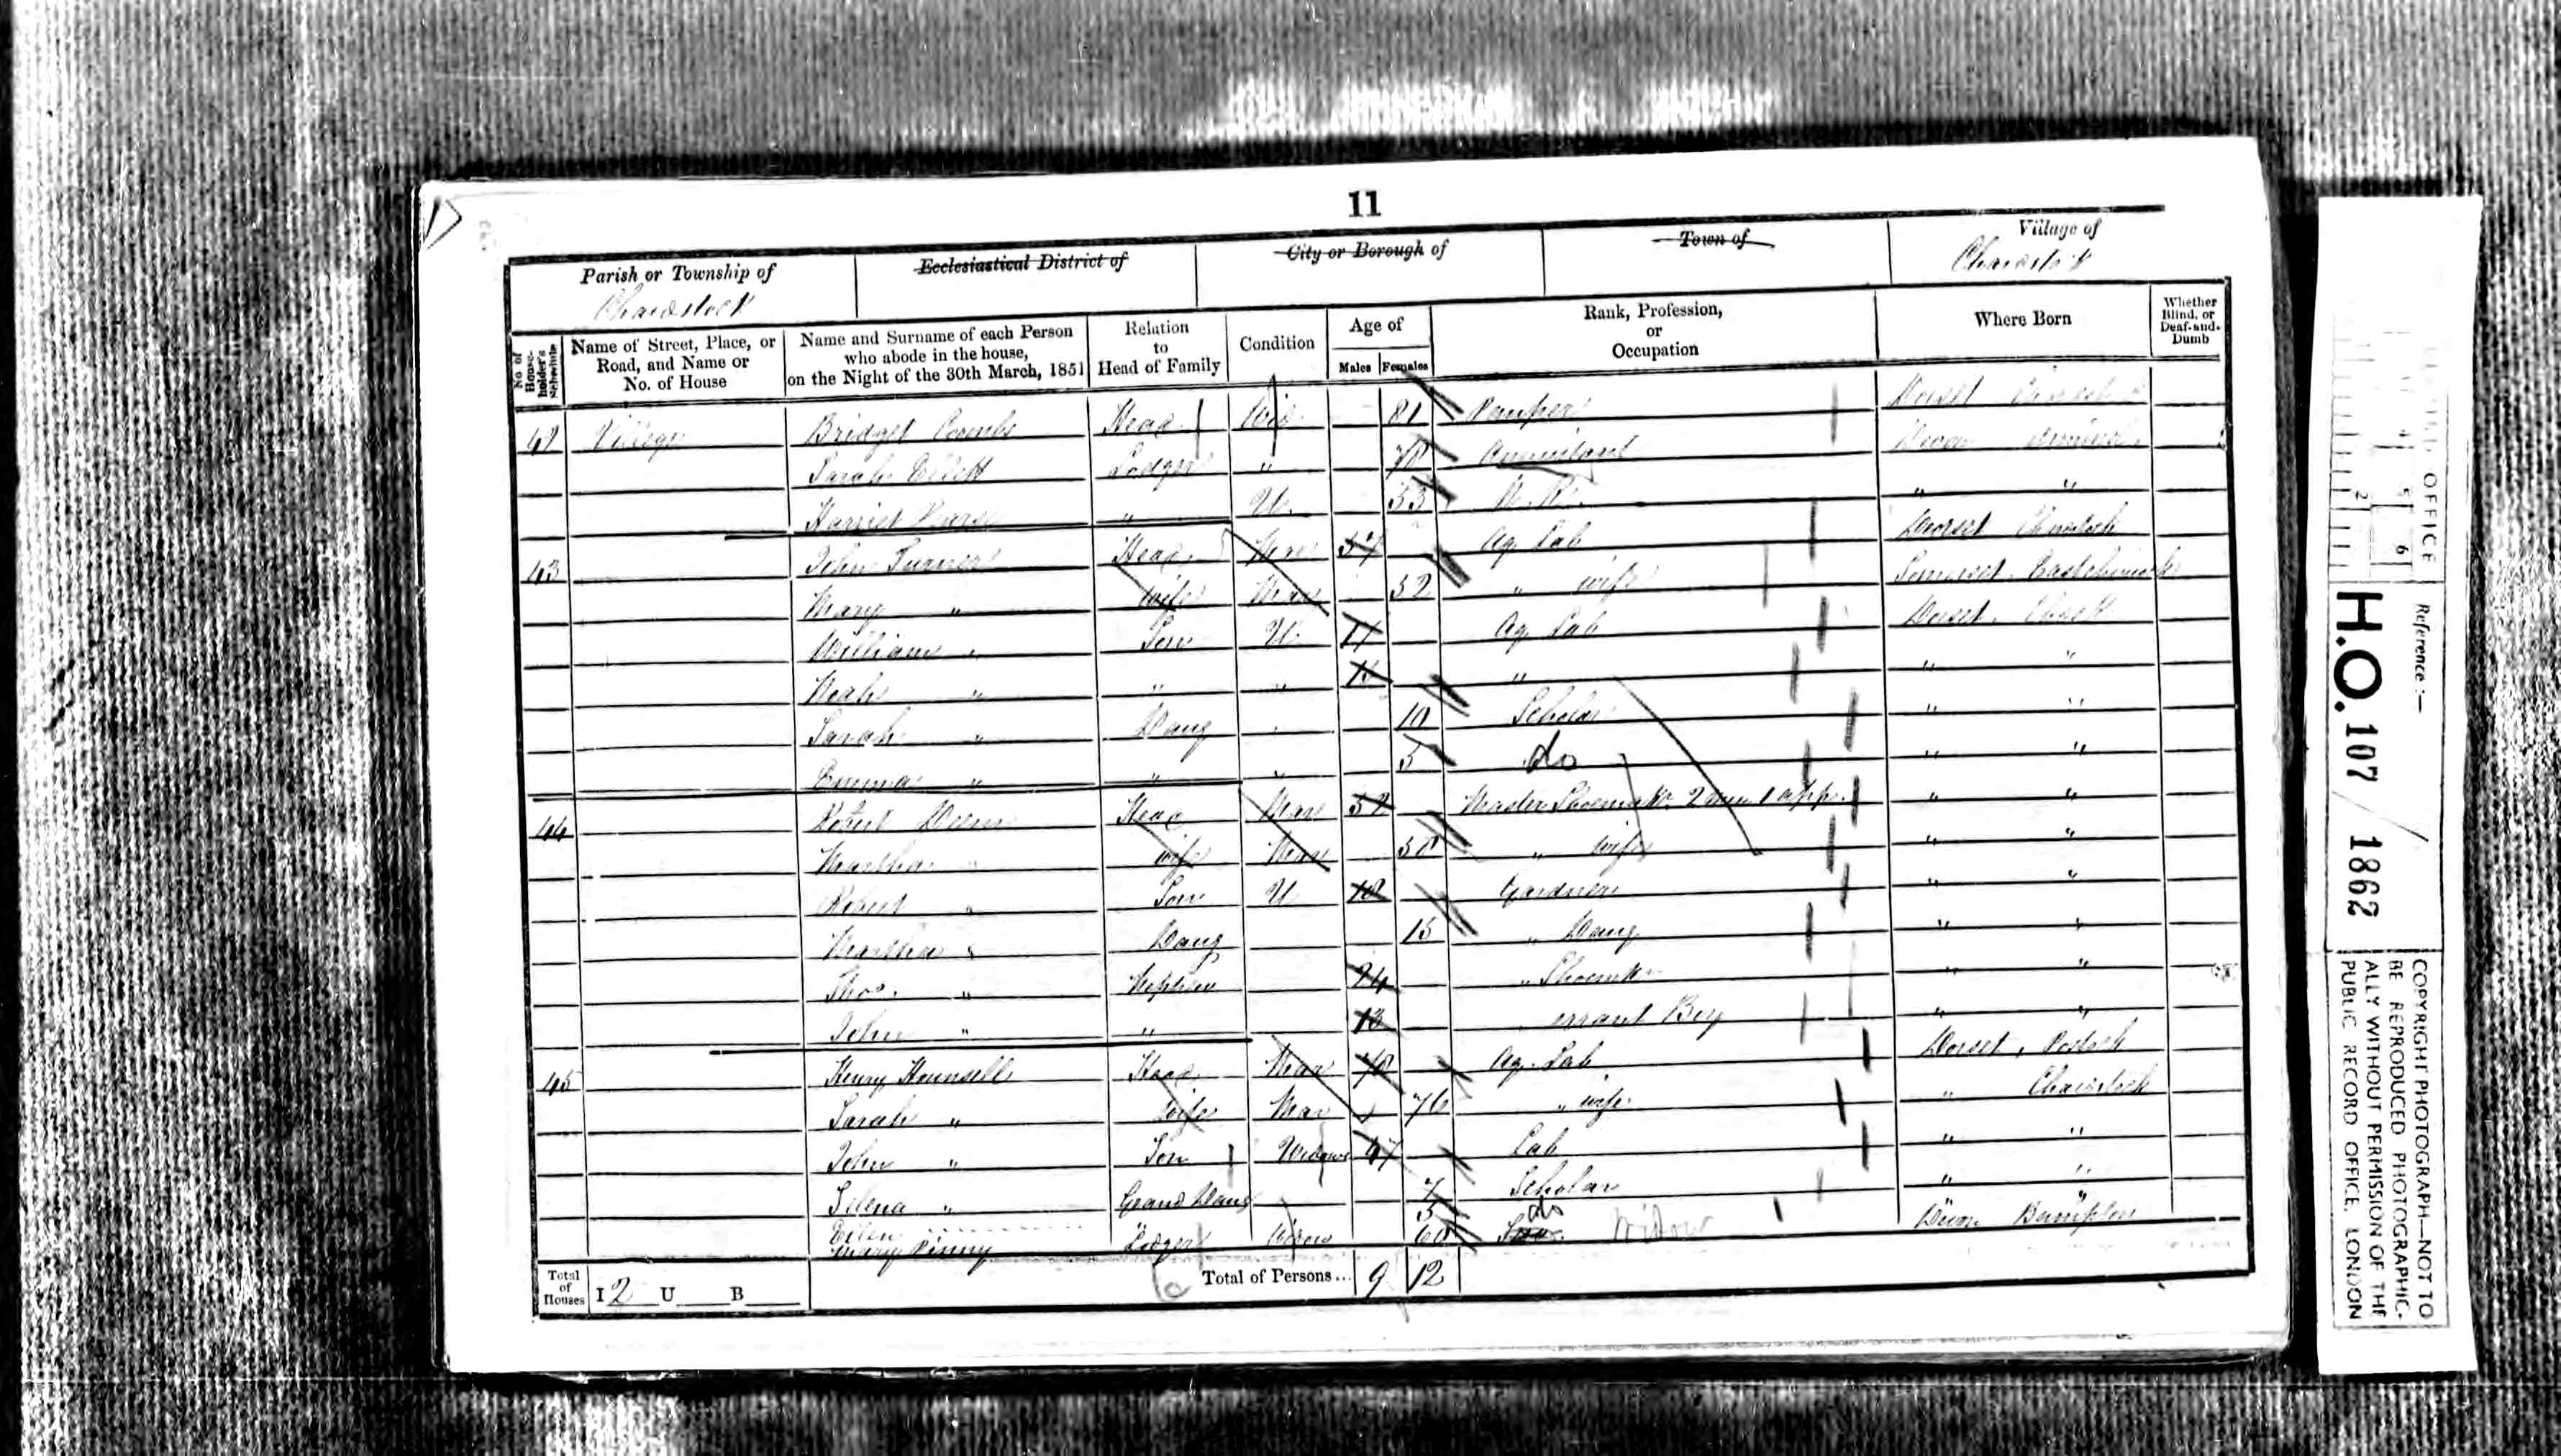 11
Parish or Township of
Chardstock
Ecclesiastical District of
City or Borough of
Town of
Village of
Chardstock
No of House-holder's Schedule
Name of Street, Place, or Road, and Name or No. of House
Name and Surname of each Person who abode in the house, on the Night of the 30th March, 1851
Relation to Head of Family
Condition
Age of
Males Females
Rank, Profession, or Occupation
Where Born
Whether Blind, or Deaf-and-Dumb
42 Village Bridget Coombs Head Wid 81 Pauper Dorset
Sarah Lodger " 78 Annuitant Devon
Harriet " U. 53 " "
43 John Turner Head Mar Ag. Lab Dorset
Mary " Wife Mar 52 " wife Somerset
William " Son U. Ag Lab Dorset
Noah " " " " " "
Sarah " Daug 10 Scholar " "
Emma " " " 5 do " "
44 Robert Head Mar 52 Master Shoemaker 2 men 1 app. " "
Martha " wife Mar 58 " wife " "
Robert " Son U 18 Gardner " "
Martha " Daug 15 " Daug " "
Thos. " Nephew 24 " " "
John " " 13 errant Boy " "
45 Henry Hounsell Head Mar 78 Ag. Lab Dorset,
Sarah " wife Mar 76 " wife " Chardstock
John " Son Widower 47 Lab " "
Selena " Grand Daug 7 Scholar " "
Ellen 5 do "
Mary Pinny Lodger Widow 60 Widow Devon Bampton
Total of Houses I 2 U B
Total of Persons... 9 12
OFFICE
Reference :—
H.O. 107 / 1862
COPYRIGHT PHOTOGRAPH—NOT TO
BE REPRODUCED PHOTOGRAPHIC-
ALLY WITHOUT PERMISSION OF THE
PUBLIC RECORD OFFICE, LONDON